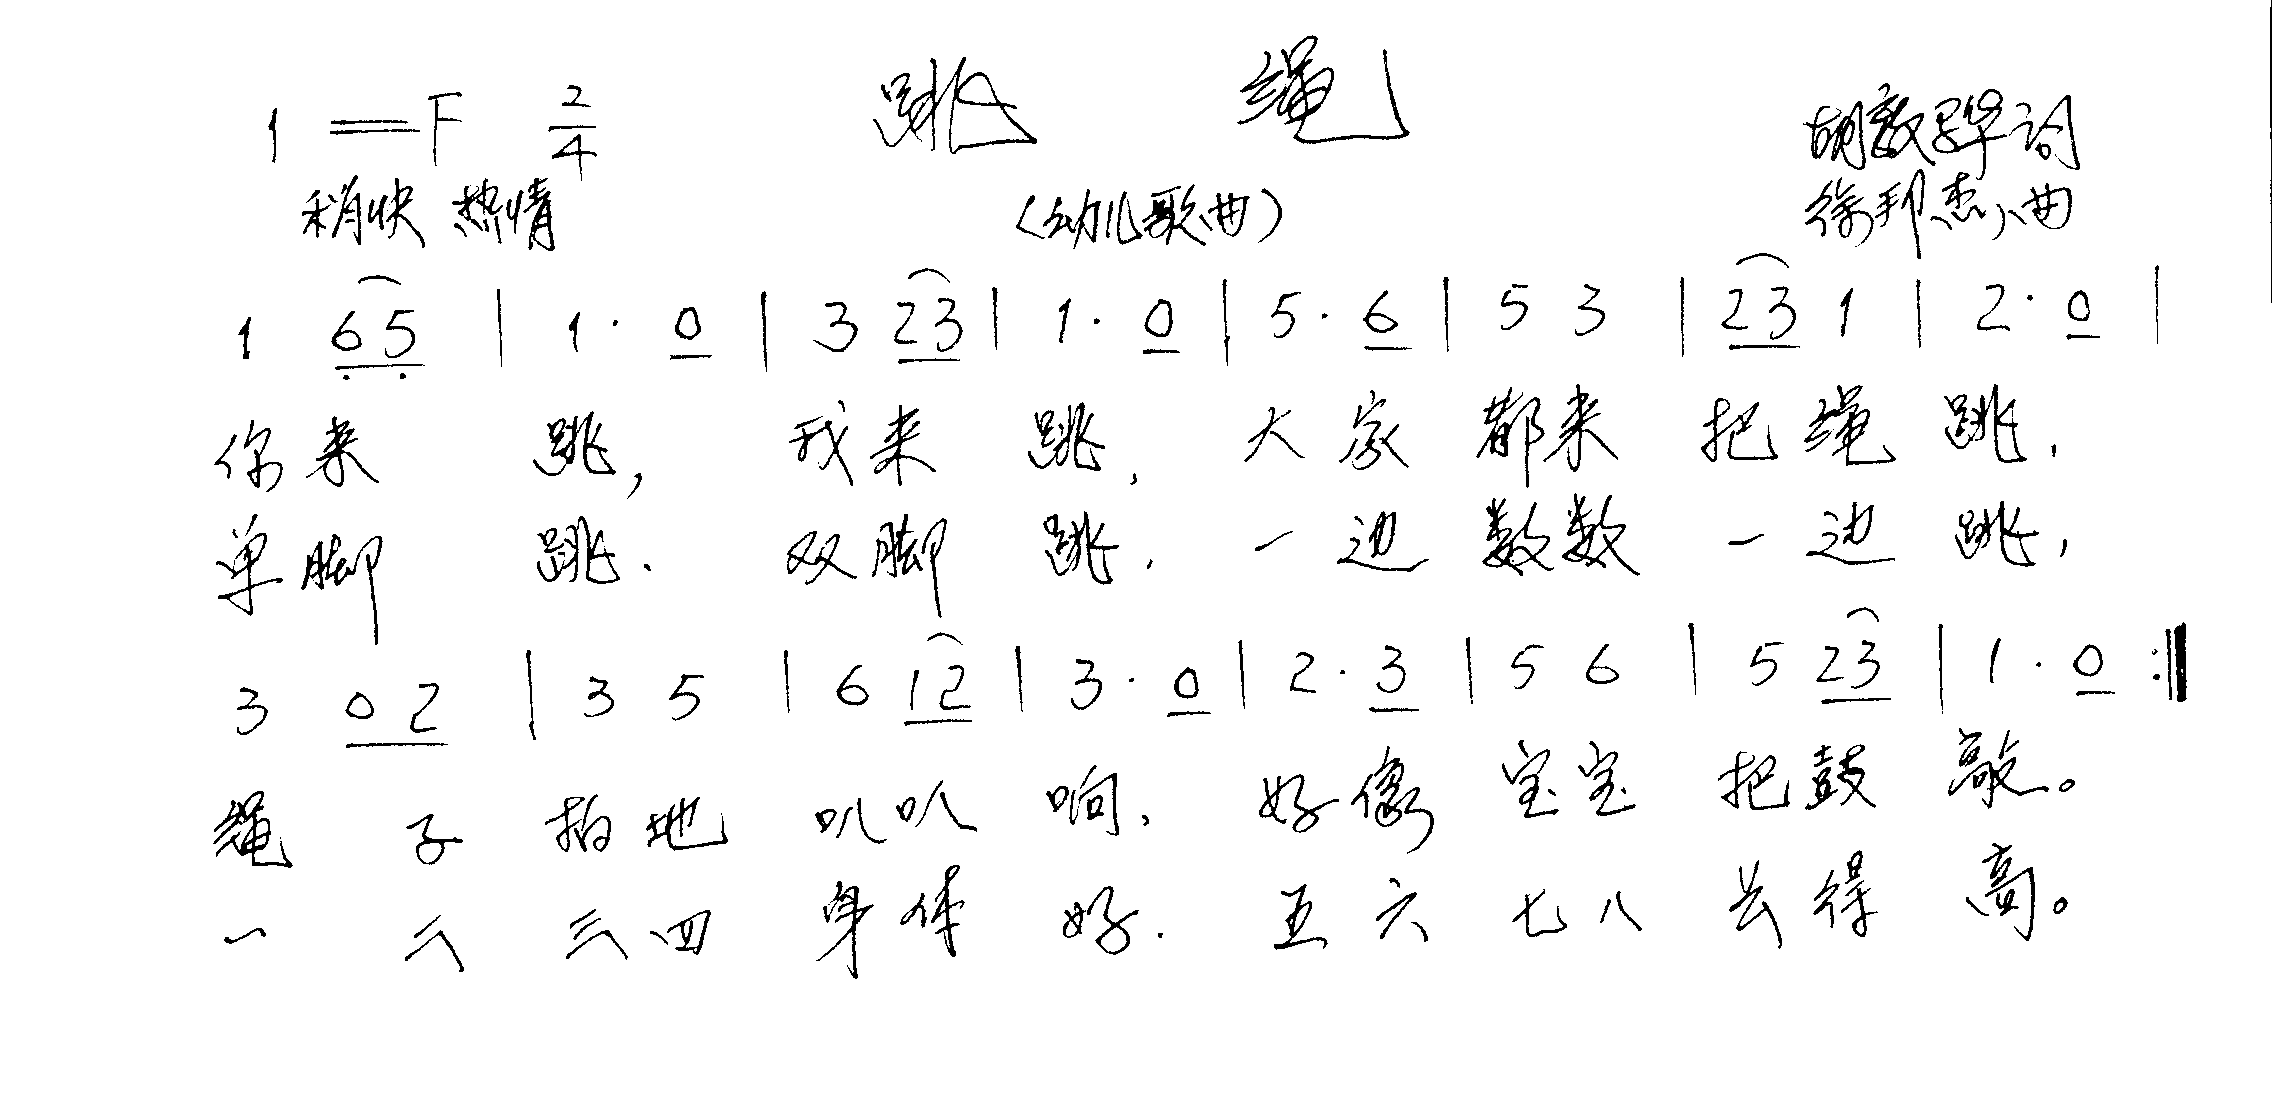 跳 绳
1 = F 2/4
稍快 热情
(幼儿歌曲)
胡敦骅词
徐邦杰曲
1 65 | 1· 0 | 3 23 | 1· 0 | 5· 6 | 5 3 | 23 1 | 2· 0 |
你来 跳, 我来 跳, 大家 都来 把绳 跳,
单脚 跳. 双脚 跳. 一边 数数 一边 跳,
3 02 | 3 5 | 6 12 | 3· 0 | 2· 3 | 5 6 | 5 23 | 1· 0 :‖
绳 子 拍地 叭叭 响, 好像 宝宝 把鼓 敲。
一 二 三四 身体 好. 五六 七八 长得 高。